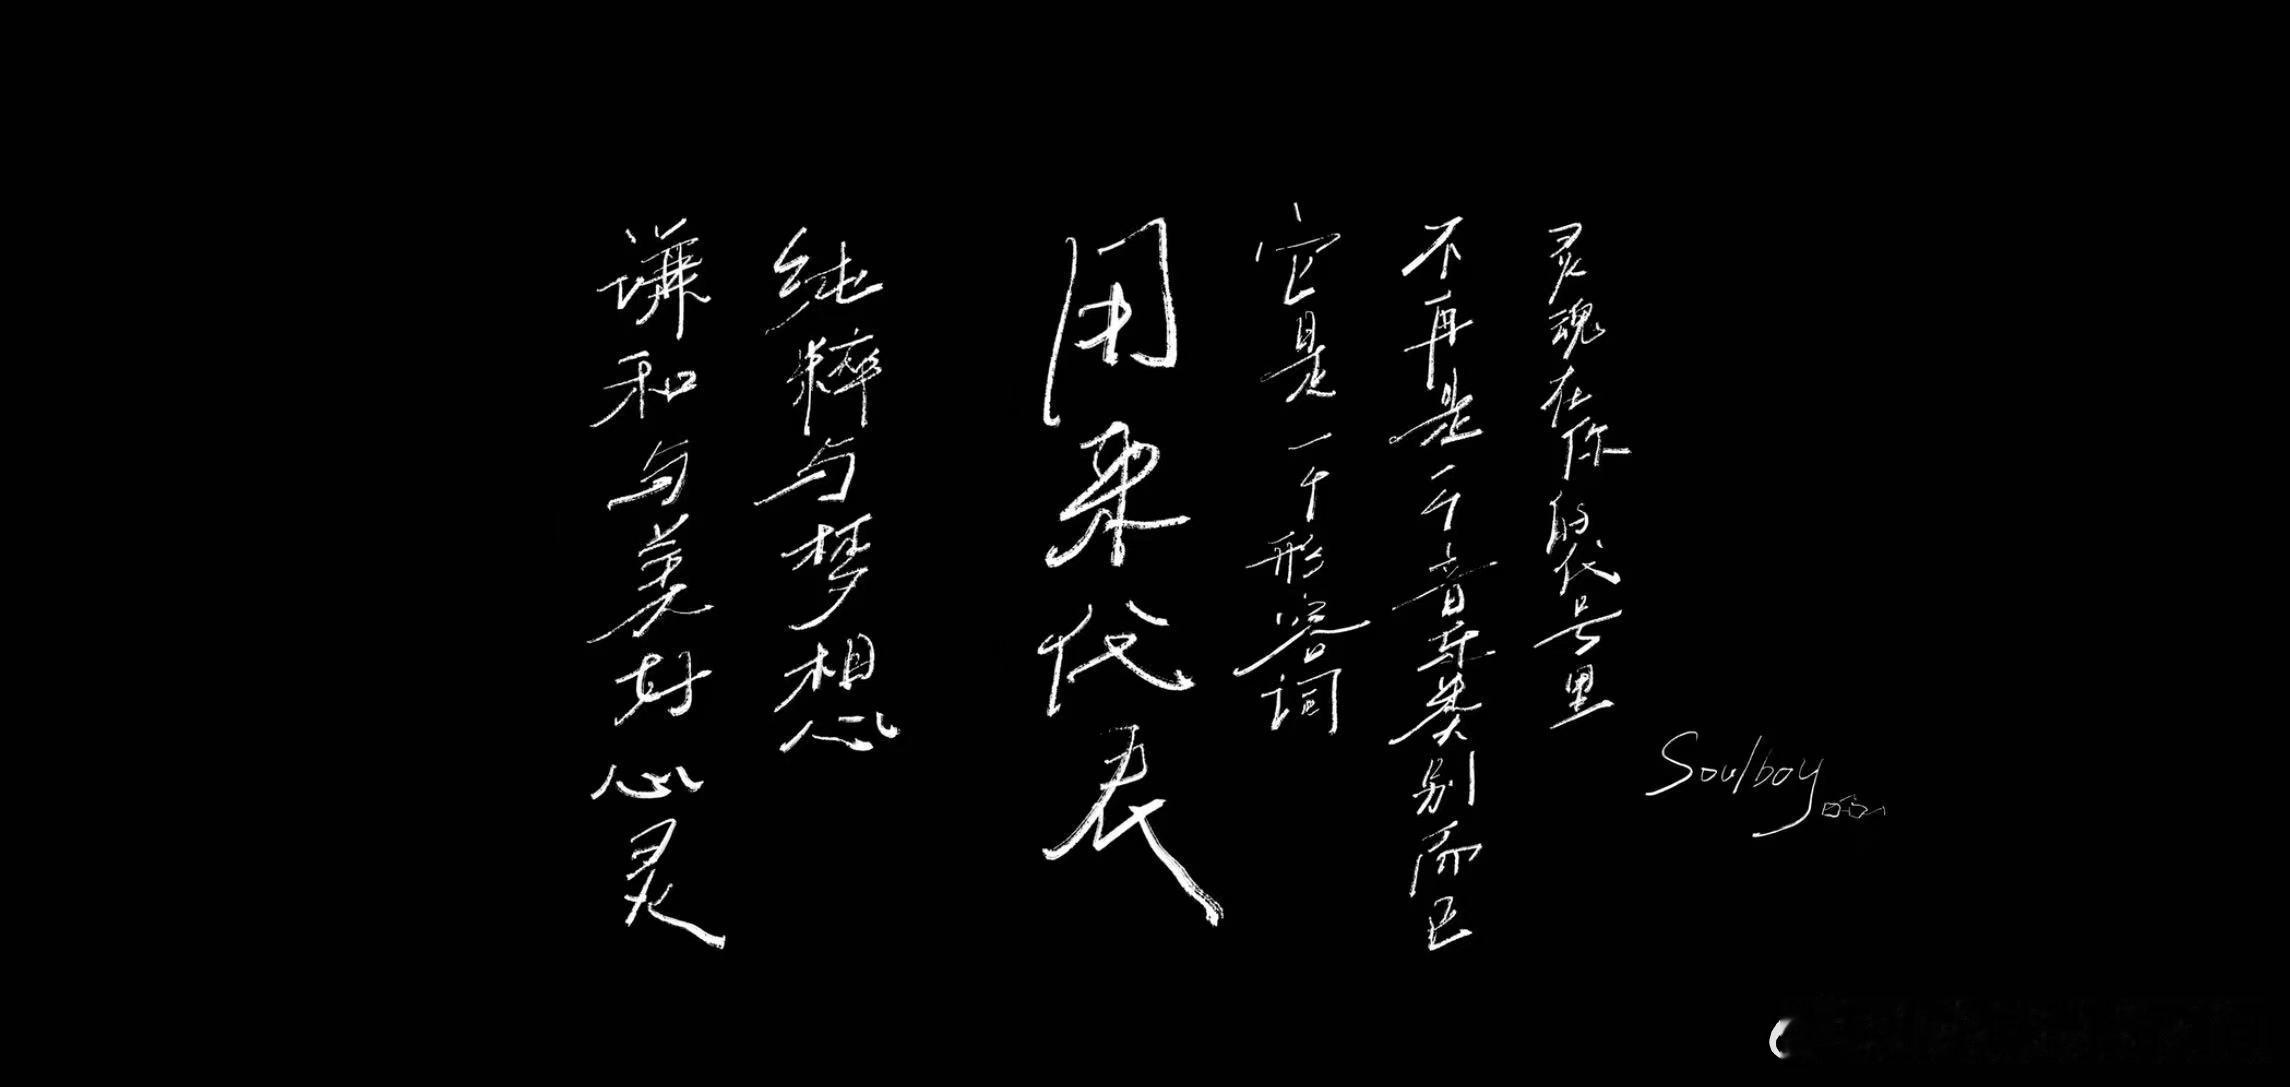 灵魂在你的代号里
不再是一个音乐类别而已
它是一个形容词
用来代表
纯粹与梦想
谦和与美好心灵
Soulboy